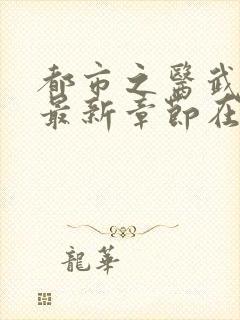 都市之醫武
最新章節在
龍華